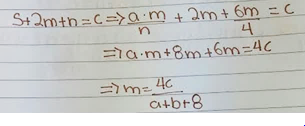 S+2m+n=c⇒ a·m/n + 2m + 6m/4 = c
⇒a·m+8m+6m=4c
⇒m= 4c/(a+b+8)